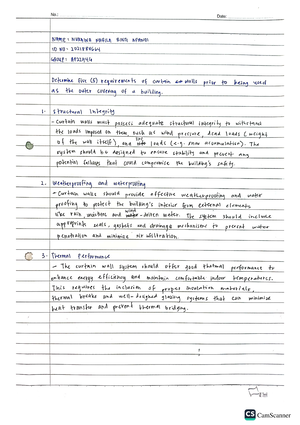 No.:
Date:
NAME:
ID NO:
GROUP:
Determine five (5) requirements of curtain walls prior to being used
as the outer covering of a building.
1. Structural Integrity
- Curtain walls must possess adequate structural integrity to withstand
the loads imposed on them such as wind pressure, dead loads (weight
of the wall itself), and live loads (e.g. snow accumulation). The
system should be designed to ensure stability and prevent any
potential failures that could compromise the building's safety.
2. Weatherproofing and waterproofing
- Curtain walls should provide effective weatherproofing and water
proofing to protect the building's interior from external elements
like rain, moisture and wind-driven water. The system should include
appropriate seals, gaskets and drainage mechanisms to prevent water
penetration and minimize air infiltration.
3. Thermal Performance
- The curtain wall system should offer good thermal performance to
enhance energy efficiency and maintain comfortable indoor temperatures.
This requires the inclusion of proper insulation materials,
thermal breaks and well-designed glazing systems that can minimize
heat transfer and prevent thermal bridging.
CS CamScanner